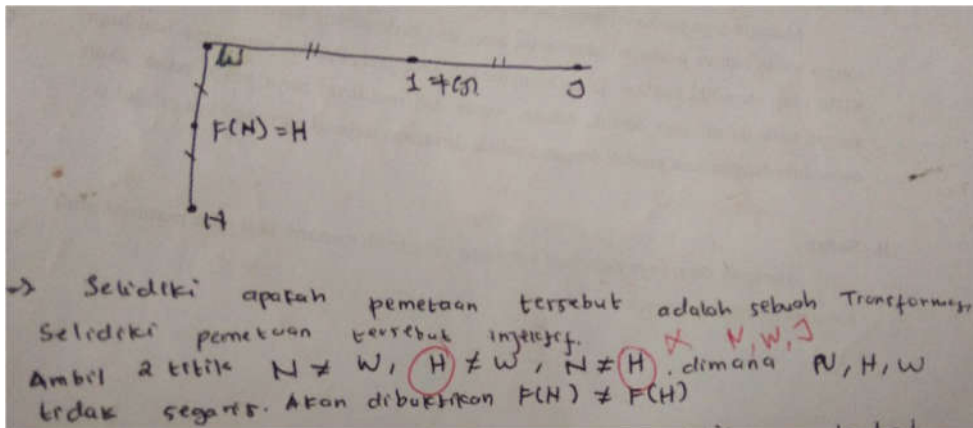 W
J
F(N) = H
N
→ Selidiki apakah pemetaan tersebut adalah sebuah Transformasi
Selidiki pemetaan tersebut injektif.
X N, W, J
Ambil 2 titik N ≠ W, H ≠ W, N ≠ H. dimana N, H, W
tidak segaris. Akan dibuktikan F(N) ≠ F(H)